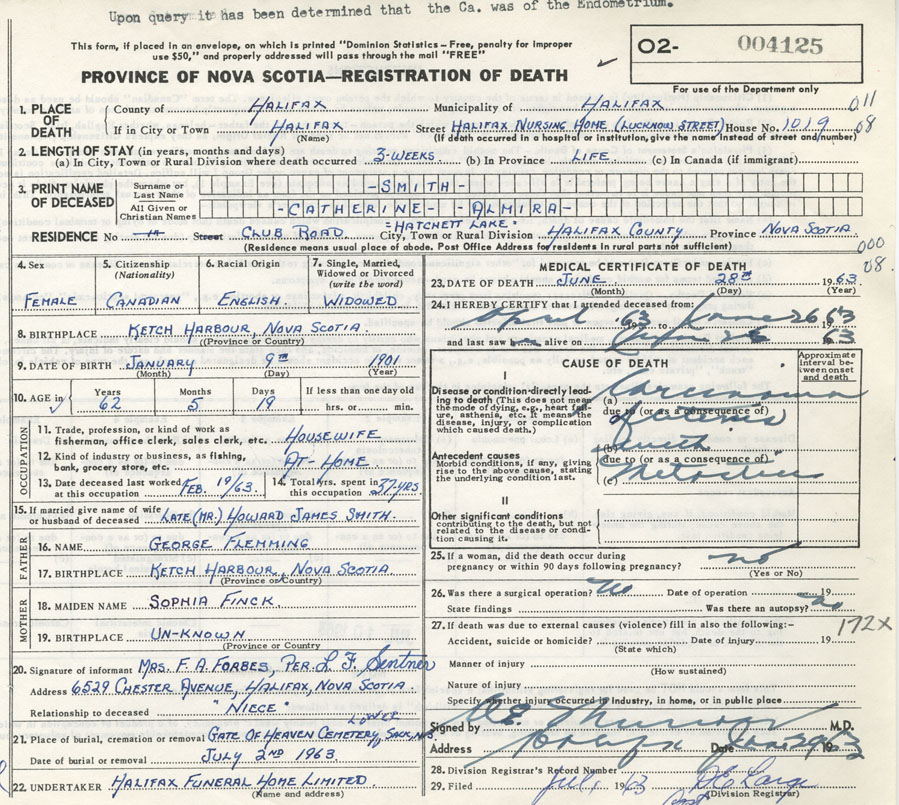 Upon query it has been determined that the Ca. was of the Endometrium.
This form, if placed in an envelope, on which is printed "Dominion Statistics—Free, penalty for improper
use $50," and properly addressed will pass through the mail "FREE"
O2- 004125
PROVINCE OF NOVA SCOTIA—REGISTRATION OF DEATH
For use of the Department only
1. PLACE OF DEATH
County of HALIFAX Municipality of HALIFAX 011
If in City or Town HALIFAX Street HALIFAX NURSING HOME (LUCKNOW STREET) House No. 1019 08
(Name) (If death occurred in a hospital or institution, give the name instead of street and/number)
2. LENGTH OF STAY (in years, months and days)
(a) In City, Town or Rural Division where death occurred 3-WEEKS (b) In Province LIFE (c) In Canada (if immigrant)
3. PRINT NAME OF DECEASED
Surname or Last Name -SMITH-
All Given or Christian Names -CATHERINE- -ALMIRA-
RESIDENCE No Street CLUB ROAD City, Town or Rural Division "HATCHETT LAKE" HALIFAX COUNTY Province NOVA SCOTIA
(Residence means usual place of abode. Post Office Address for residents in rural parts not sufficient)
000
08.
4. Sex
FEMALE
5. Citizenship (Nationality)
CANADIAN
6. Racial Origin
ENGLISH
7. Single, Married, Widowed or Divorced (write the word)
WIDOWED
8. BIRTHPLACE KETCH HARBOUR, NOVA SCOTIA
(Province or Country)
9. DATE OF BIRTH JANUARY 9TH 1901
(Month) (Day) (Year)
10. AGE in Years 62 Months 5 Days 19 If less than one day old hrs. or min.
OCCUPATION
11. Trade, profession, or kind of work as
fisherman, office clerk, sales clerk, etc. HOUSEWIFE
12. Kind of industry or business, as fishing,
bank, grocery store, etc. AT-HOME
13. Date deceased last worked at this occupation FEB. 19/63
14. Total yrs. spent in this occupation 37-YRS
15. If married give name of wife
or husband of deceased LATE (MR.) HOWARD JAMES SMITH.
FATHER
16. NAME GEORGE FLEMMING
17. BIRTHPLACE KETCH HARBOUR, NOVA SCOTIA
(Province or Country)
MOTHER
18. MAIDEN NAME SOPHIA FINCK.
19. BIRTHPLACE UN-KNOWN
(Province or Country
20. Signature of informant MRS. F. A. FORBES, PER. L F. Sentner
Address 6529 CHESTER AVENUE, HALIFAX, NOVA SCOTIA.
Relationship to deceased "NIECE"
21. Place of burial, cremation or removal GATE OF HEAVEN CEMETERY, LOWER SACK, N.S.
Date of burial or removal JULY 2ND 1963
22. UNDERTAKER HALIFAX FUNERAL HOME LIMITED
(Name and address)
MEDICAL CERTIFICATE OF DEATH
23. DATE OF DEATH JUNE 28TH 1963
(Month) (Day) (Year)
24. I HEREBY CERTIFY that I attended deceased from:
April '63 to June 26 1963
and last saw alive on June 26 63
CAUSE OF DEATH
Approximate interval between onset and death
I
Disease or condition directly leading to death (This does not mean
the mode of dying, e.g., heart failure, asthenia, etc. It means the
disease, injury, or complication
which caused death.)
(a) Carcinoma
due to (or as a consequence of)
of uterus
(b) with
Antecedent causes
Morbid conditions, if any, giving
rise to the above cause, stating
the underlying condition last.
due to (or as a consequence of)
(c)
II
Other significant conditions
contributing to the death, but not
related to the disease or condition causing it.
25. If a woman, did the death occur during
pregnancy or within 90 days following pregnancy? no
(Yes or No)
26. Was there a surgical operation? No Date of operation 19
State findings Was there an autopsy? no
27. If death was due to external causes (violence) fill in also the following:—
Accident, suicide or homicide? Date of injury 19 172X
(State which)
Manner of injury
(How sustained)
Nature of injury
Specify whether injury occurred in industry, in home, or in public place
Signed by M.D.
Address Halifax Date June 29 1963
28. Division Registrar's Record Number
29. Filed July 1963
(Division Registrar)